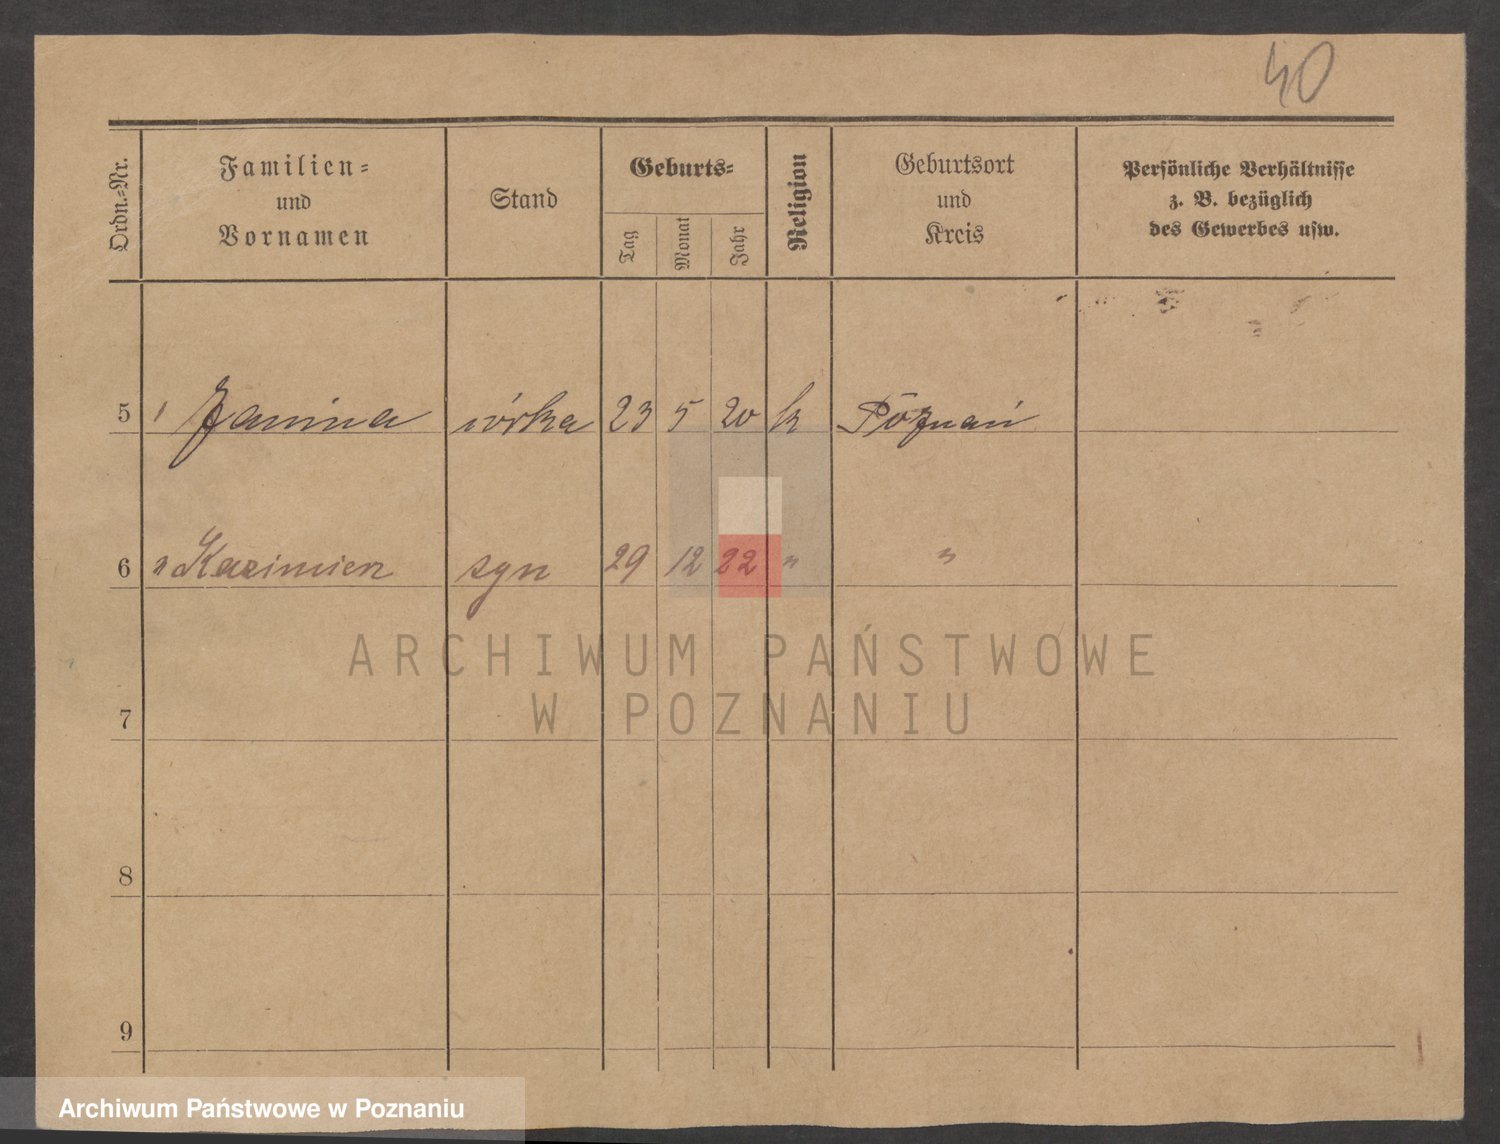 40
Ordn.-Nr.
Familien-
und
Vornamen
Stand
Geburts-
Tag
Monat
Jahr
Religion
Geburtsort
und
Kreis
Persönliche Verhältnisse
z. B. bezüglich
des Gewerbes usw.
5 1 Janina córka 23 5 20 k Poznań
6 2 Kazimierz syn 29 12 22 " "
ARCHIWUM PAŃSTWOWE
W POZNANIU
7
8
9
Archiwum Państwowe w Poznaniu